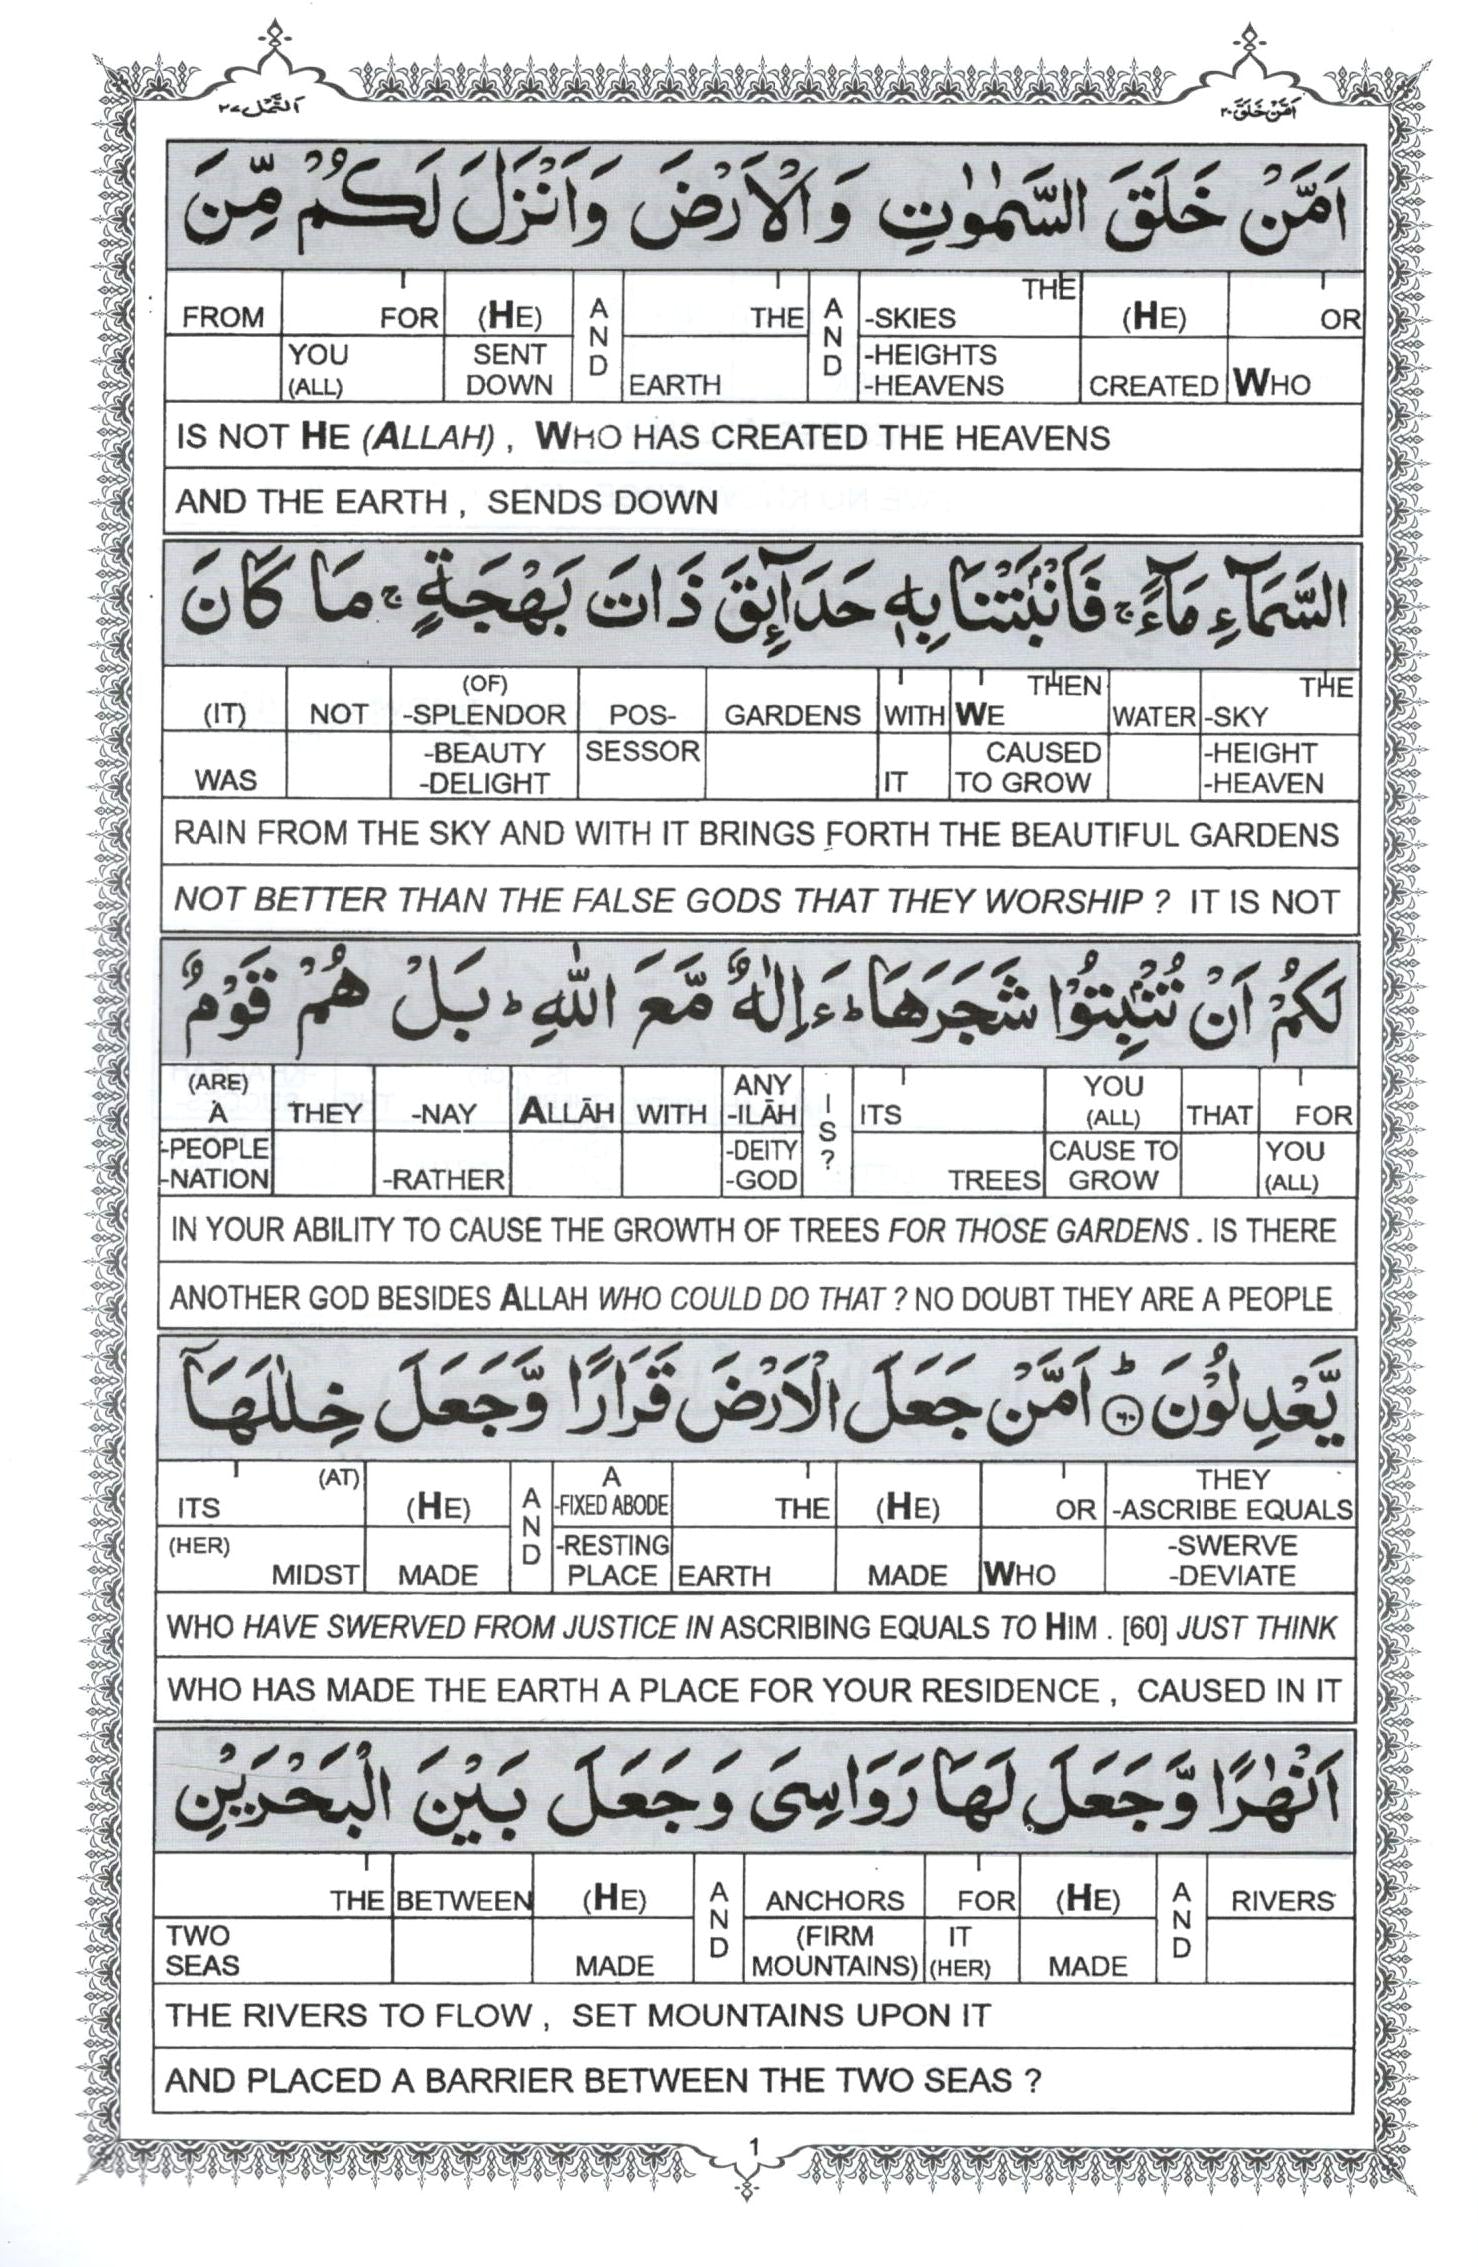 اَلنَّمْل ٢٧
اَمَّنْ خَلَقَ ٢٠
اَمَّنْ خَلَقَ السَّمٰوٰتِ وَالْاَرْضَ وَاَنْزَلَ لَكُمْ مِّنَ
FROM FOR (HE) AND THE AND THE -SKIES (HE) OR
YOU (ALL) SENT DOWN EARTH -HEIGHTS -HEAVENS CREATED WHO
IS NOT HE (ALLAH) , WHO HAS CREATED THE HEAVENS
AND THE EARTH , SENDS DOWN
السَّمَآءِ مَآءً ۚ فَاَنْۢبَتْنَا بِهٖ حَدَآئِقَ ذَاتَ بَهْجَةٍ ۚ مَا كَانَ
(IT) NOT (OF) -SPLENDOR POS- GARDENS WITH WE THEN WATER -SKY THE
WAS -BEAUTY -DELIGHT SESSOR IT CAUSED TO GROW -HEIGHT -HEAVEN
RAIN FROM THE SKY AND WITH IT BRINGS FORTH THE BEAUTIFUL GARDENS
NOT BETTER THAN THE FALSE GODS THAT THEY WORSHIP ? IT IS NOT
لَكُمْ اَنْ تُنْۢبِتُوْا شَجَرَهَا ؕ ءَاِلٰهٌ مَّعَ اللّٰهِ ؕ بَلْ هُمْ قَوْمٌ
(ARE) A THEY -NAY ALLĀH WITH ANY -ILĀH IS? ITS YOU (ALL) THAT FOR
-PEOPLE -NATION -RATHER -DEITY -GOD TREES CAUSE TO GROW YOU (ALL)
IN YOUR ABILITY TO CAUSE THE GROWTH OF TREES FOR THOSE GARDENS . IS THERE
ANOTHER GOD BESIDES ALLAH WHO COULD DO THAT ? NO DOUBT THEY ARE A PEOPLE
يَّعْدِلُوْنَ ؕ ۶۰ اَمَّنْ جَعَلَ الْاَرْضَ قَرَارًا وَّجَعَلَ خِلٰلَهَاۤ
ITS (AT) (HE) AND A -FIXED ABODE THE (HE) OR THEY -ASCRIBE EQUALS
(HER) MIDST MADE -RESTING PLACE EARTH MADE WHO -SWERVE -DEVIATE
WHO HAVE SWERVED FROM JUSTICE IN ASCRIBING EQUALS TO HIM . [60] JUST THINK
WHO HAS MADE THE EARTH A PLACE FOR YOUR RESIDENCE , CAUSED IN IT
اَنْهٰرًا وَّجَعَلَ لَهَا رَوَاسِيَ وَجَعَلَ بَيْنَ الْبَحْرَيْنِ
THE BETWEEN (HE) AND ANCHORS FOR (HE) AND RIVERS
TWO SEAS MADE (FIRM MOUNTAINS) IT (HER) MADE
THE RIVERS TO FLOW , SET MOUNTAINS UPON IT
AND PLACED A BARRIER BETWEEN THE TWO SEAS ?
1